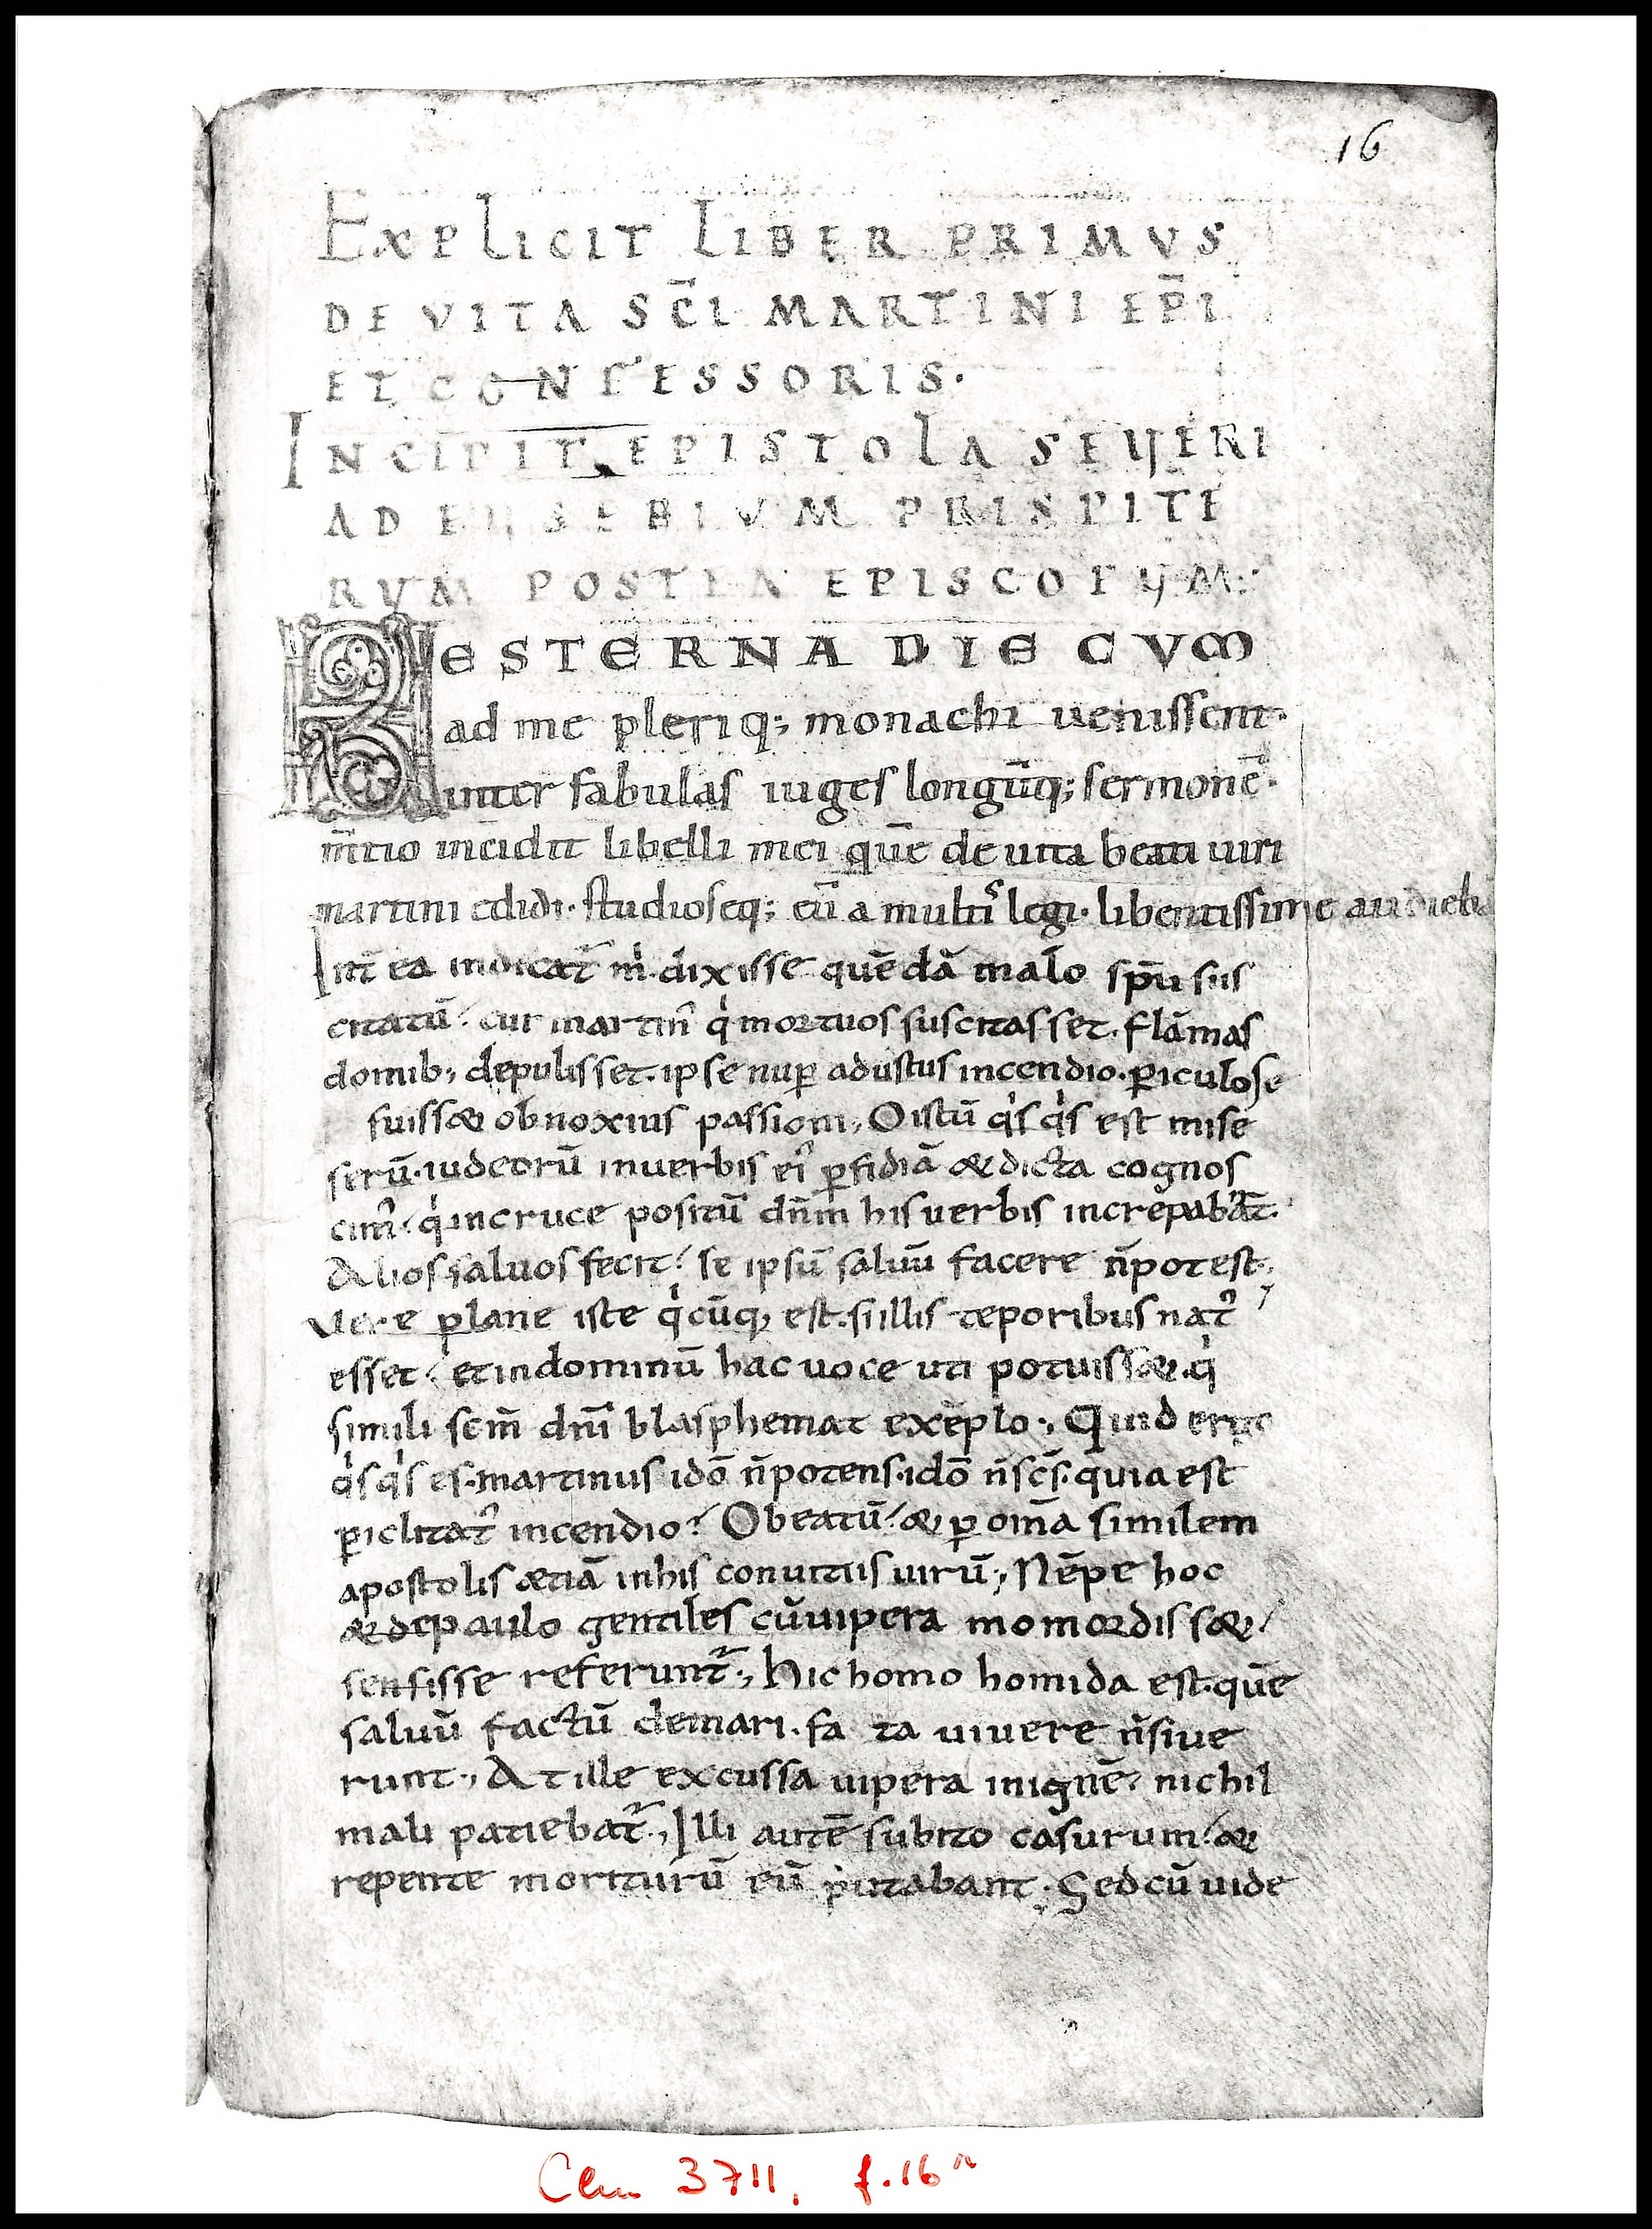 16
Explicit Liber primus
de vita sc̄i Martini ep̄i
et confessoris.
Incipit epistola Severi
ad Eusebium prispite
rum postea episcopum:
Hesterna die cum
ad me pleriq; monachi uenissent.
inter fabulas iuges longūq; sermonē.
m̄tio incidit libelli mei quē de uita beati uiri
martini edidi. studioseq; eū a multis legi. libentissime audieba
Int̄ ea indicat᷑ m̍ dixisse quēdā malo sp̄u sus
citatū. cur martin᷒ q̍ mortuos suscitasset. flāmas
domib; depulisset. ipse nuꝑ adustus incendio. ꝑiculose
fuiss& obnoxius passioni; O istū q̍sq̍s est mise
serū. iudeorū in uerbis ei᷒ ꝑfidiā & dicta cognos
cim᷒. q̍ in cruce positū dn̄m his uerbis increpabāt.
Alios saluos fecit. se ipsū saluū facere n̄ potest;
Vere plane iste q̍cūq, est. si illis tēporibus nat᷒
esset. et in dominū hac uoce uti potuiss&. q̍
simili sem̄ dn̄i blasphemat exēplo; Quid ergo
q̍sq̍s es. martinus idō n̄ potens. idō n̄ sc̄s. quia est
ꝑiclitat᷒ incendio? O beatū. & ꝑ om̄a similem
apostolis &iā in his conuitiis uirū; Nēpe hoc
& de paulo gentiles cū uipera momordiss&.
sensisse referunt᷑; Hic homo homida est. quē
saluū factū de mari. fa ta uiuere n̄ siue
runt; At ille excussa uipera in ignē. nichil
mali patiebat᷑; Illi autē subito casurum. &
repente moriturū eū putabant. Sed cū uide
Clm 3711, f. 16r